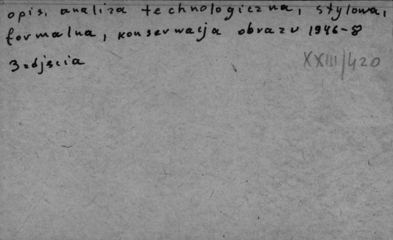 opis, analiza technologiczna, stylowa,
formalna, konserwacja obrazu 1946-8
3 zdjścia
XXIII/420